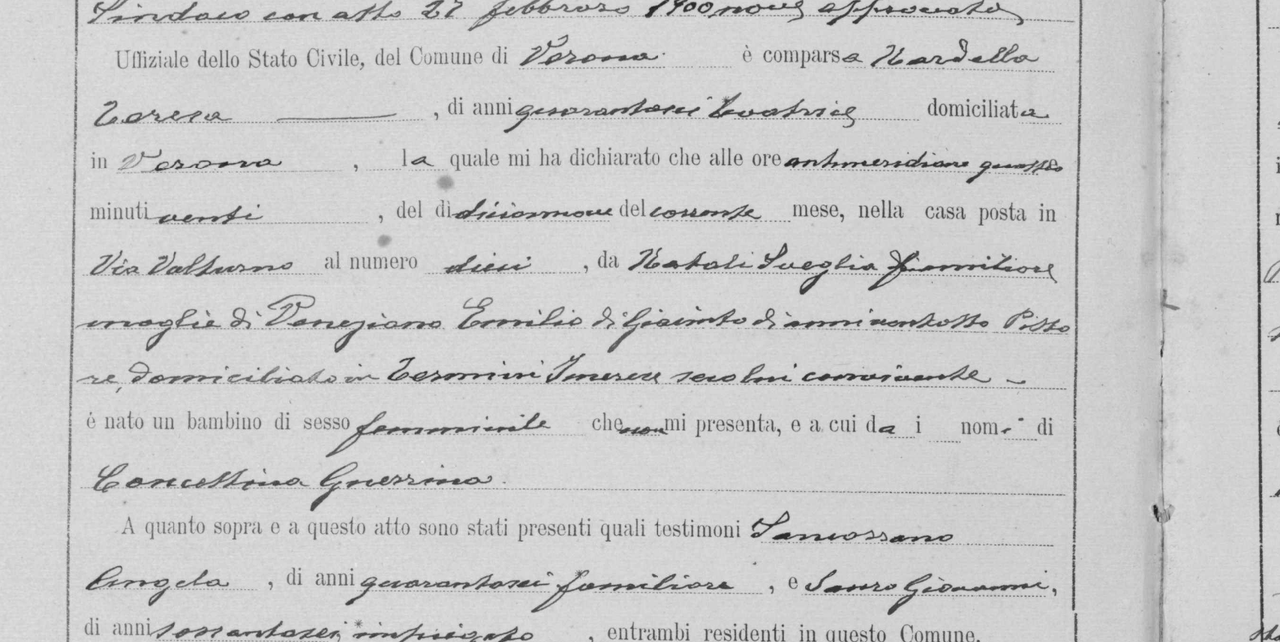 Sindaco con atto 27 febbraro 1900 nove approvato
Uffiziale dello Stato Civile, del Comune di Verona è comparsa Nardella
Teresa , di anni quarantasei Levatrice domiciliata
in Verona , la quale mi ha dichiarato che alle ore antimeridiane quattro
minuti venti , del dì diciannove del corrente mese, nella casa posta in
Via Volturno al numero dieci , da Natali Sveglia familiare
moglie di Veneziano Emilio di Giacinto di anni ventotto Pitto
re, domiciliato in Termini Imerese seco lui convivente
è nato un bambino di sesso femminile che non mi presenta, e a cui da i nomi di
Concettina Guerrina
A quanto sopra e a questo atto sono stati presenti quali testimoni
Angela , di anni quarantasei familiare , e Sauro Giovanni,
di anni sessantasei, impiegato , entrambi residenti in questo Comune.